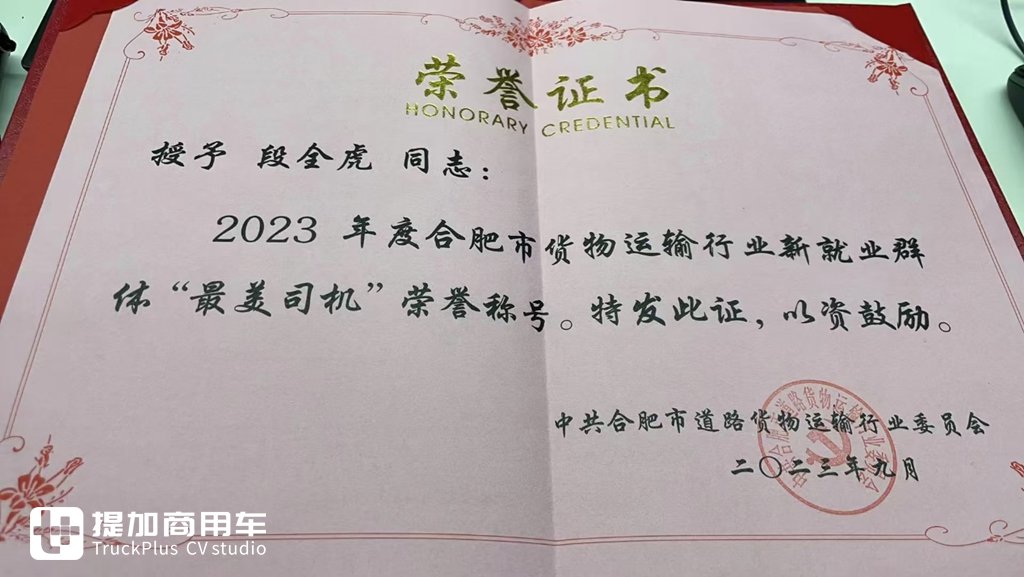 荣誉证书
HONORARY CREDENTIAL
授予 段全虎 同志：
2023 年度合肥市货物运输行业新就业群
体“最美司机”荣誉称号。特发此证，以资鼓励。
中共合肥市道路货物运输行业委员会
二〇二三年九月
提加商用车
TruckPlus CV studio